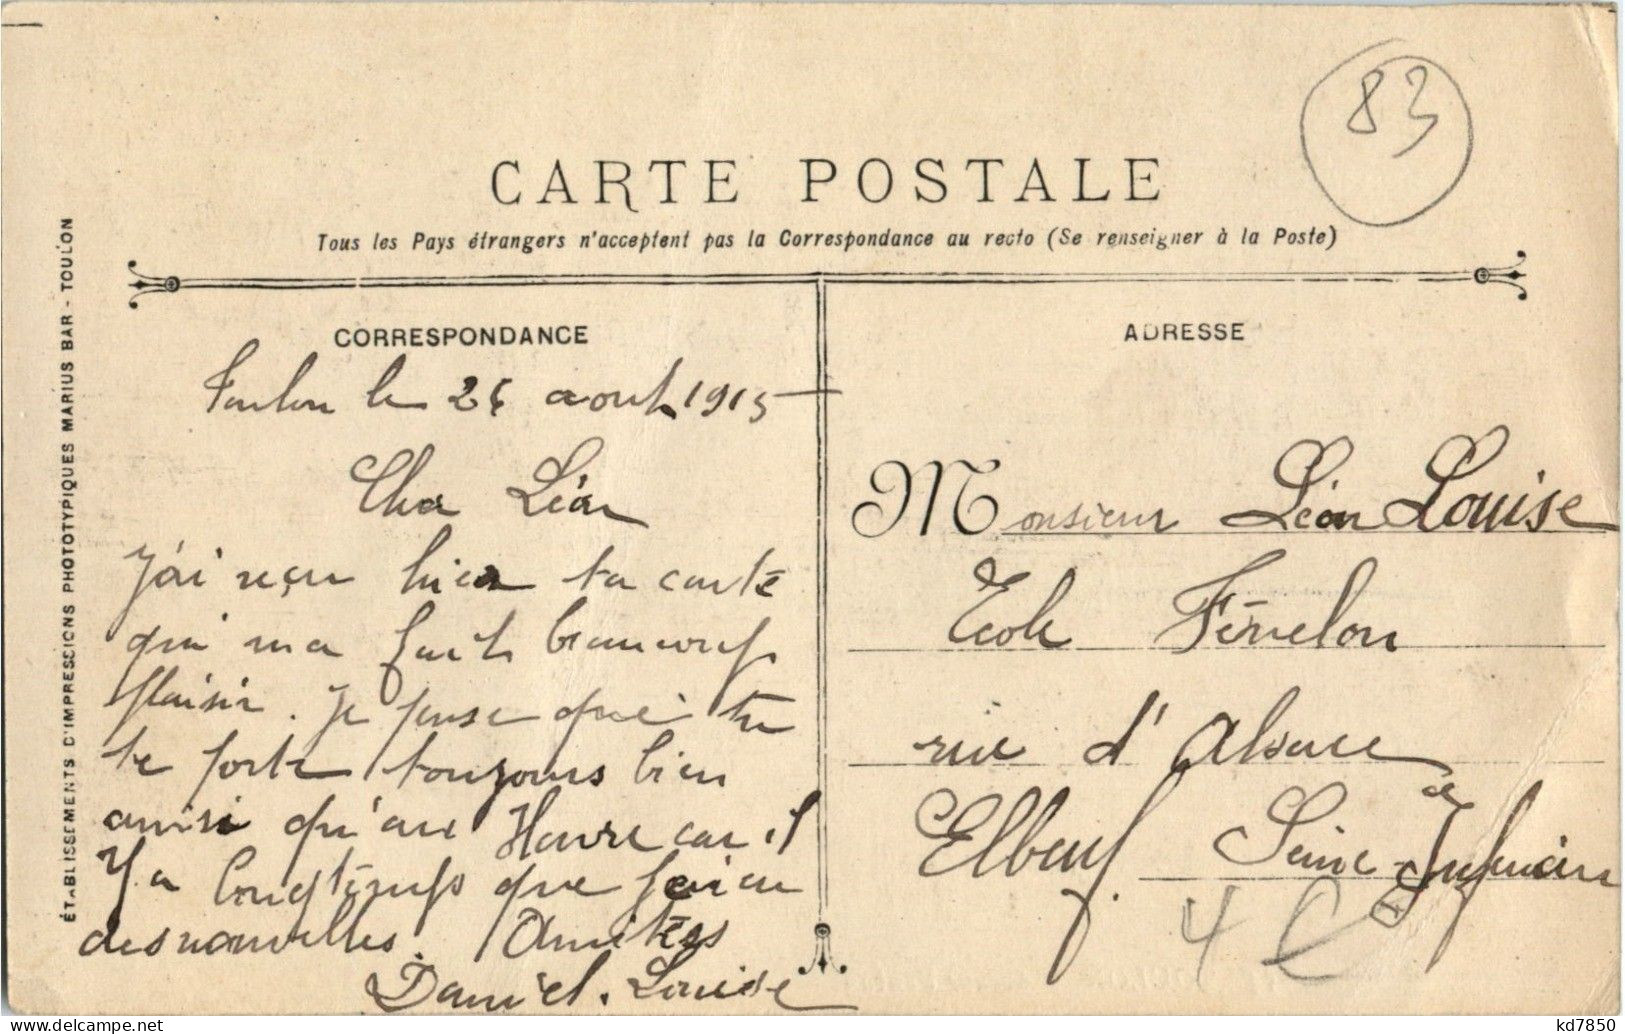 83
CARTE POSTALE
Tous les Pays étrangers n'acceptent pas la Correspondance au recto (Se renseigner à la Poste)
ÉTABLISSEMENTS D'IMPRESSIONS PHOTOTYPIQUES MARIUS BAR - TOULON
CORRESPONDANCE
Toulon le août 1915
Cher Léon
J'ai reçu hier ta carte
qui ma fait beaucoup
plaisir. Je pense que tu
te porte toujours bien
ainsi qu'au Havre car il
Y a longtemps que j'ai eu
des nouvelles. Amitiés
Daniel. Louise
ADRESSE
Monsieur Léon Louise
Ecole Fénelon
rue d'Alsace
Elbeuf Seine Inférieure
4 €
kd7850